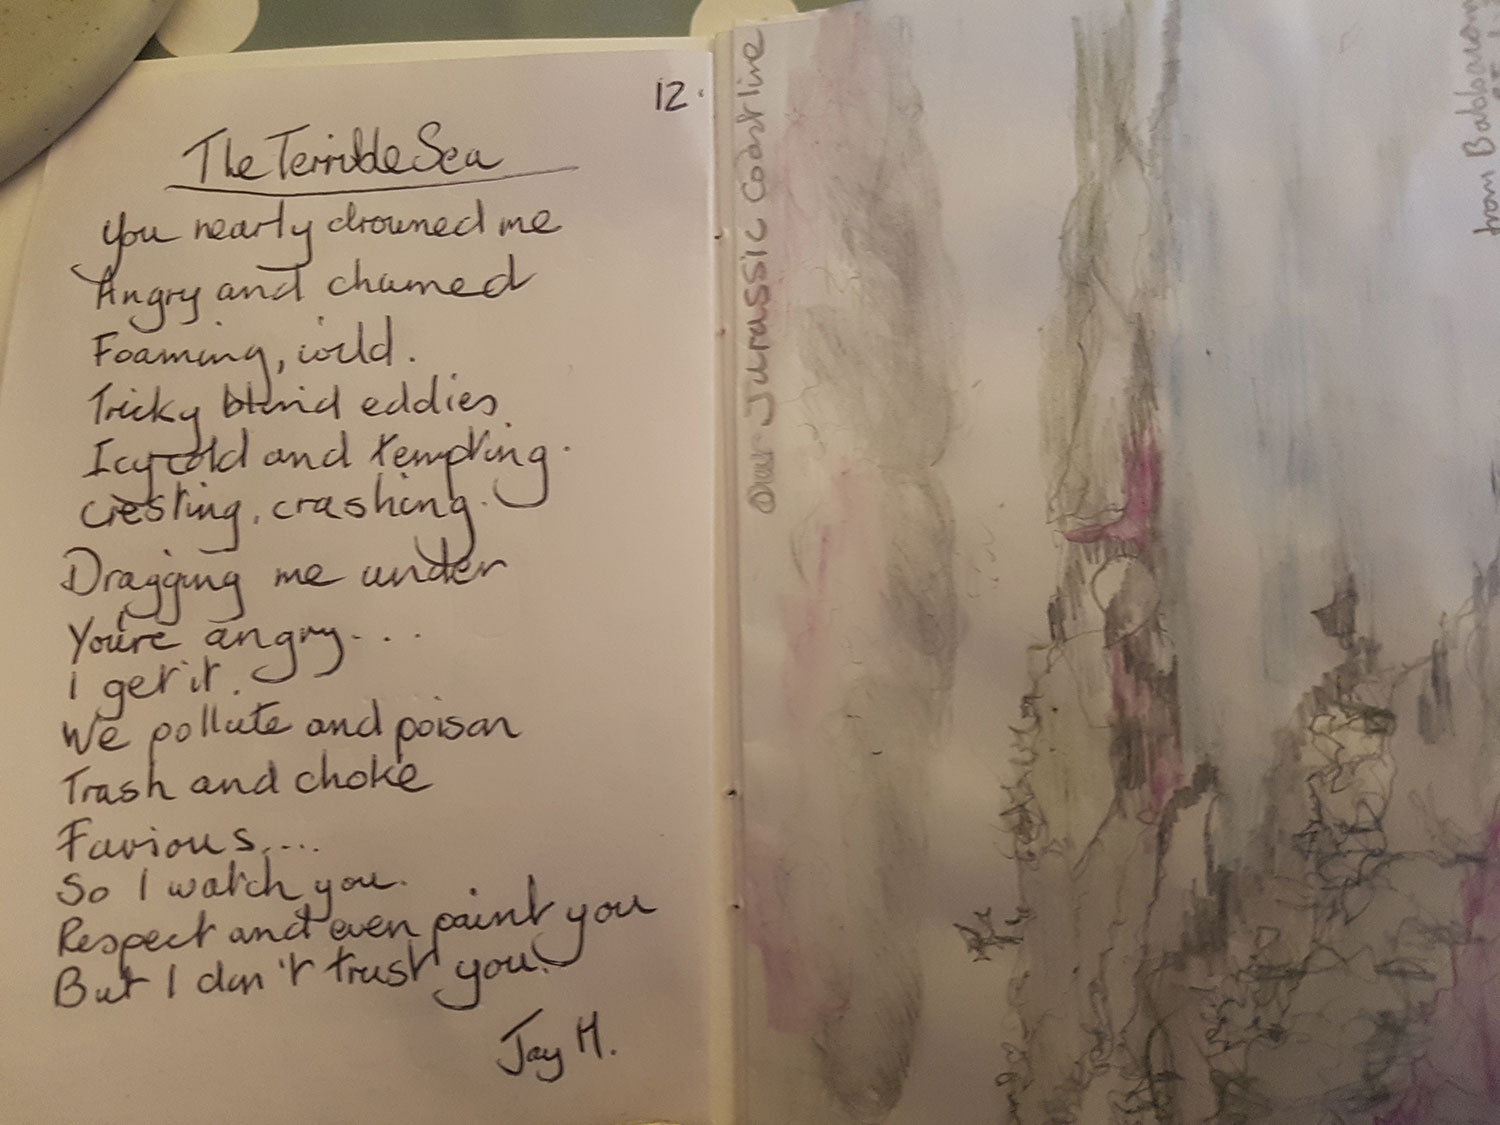 12.
The Terrible Sea
You nearly drowned me
Angry and churned
Foaming, wild.
Tricky blind eddies
Icy cold and tempting.
Cresting, crashing.
Dragging me under
You're angry...
I get it.
We pollute and poison
Trash and choke
Furious....
So I watch you.
Respect and even paint you
But I don't trust you.
Jay H.
Our Jurassic Coastline
from